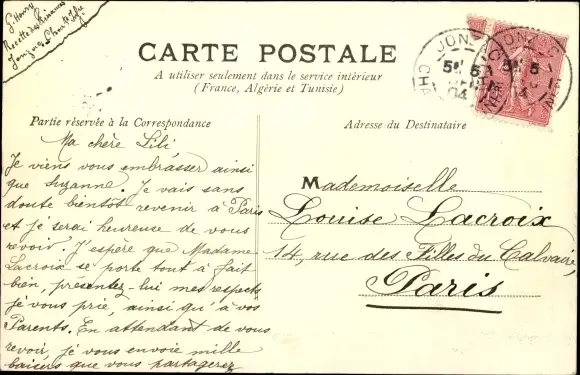 G. Henry
Recette des Finances
Jonzac
CARTE POSTALE
A utiliser seulement dans le service intérieur
(France, Algérie et Tunisie)
JONZAC
5
04
JONZAC
5
Partie réservée à la Correspondance
Ma chère Lili
Je viens vous embrasser ainsi
que Suzanne. Je vais sans
doute bientôt revenir à Paris
et je serai heureuse de vous
revoir. J'espère que Madame
Lacroix se porte tout à fait
bien, présentez-lui mes respects
je vous prie, ainsi qu'à vos
Parents. En attendant de vous
revoir, je vous envoie mille
baisers que vous partagerez
Adresse du Destinataire
Mademoiselle
Louise Lacroix
14, rue des Filles du Calvaire,
Paris